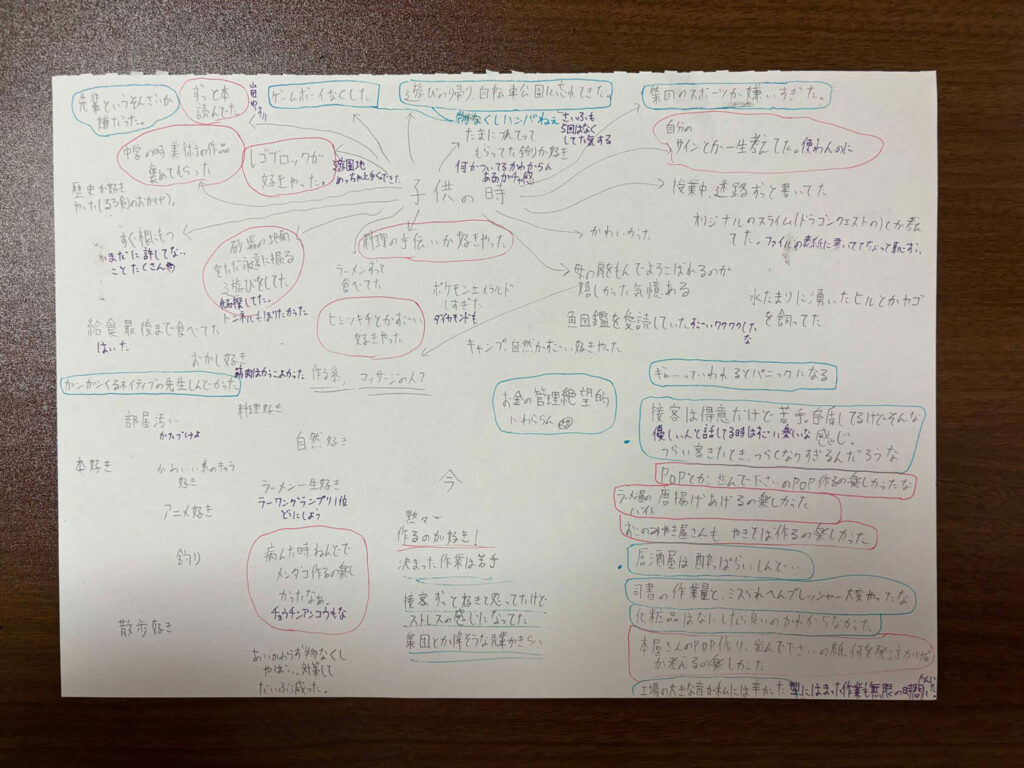 先輩というそんざいが
嫌だった。
ずっと本
読んでた
ゲームボーイなくした
遊びの帰り、自転車公園に忘れてきた。
集団のスポーツが嫌いすぎた。
物なくしハンパねえ
さいふも
5回はなく
してた気する
たまにつれてって
もらってた釣りが好き
何かついてるかわからん
あるがチャ感
自分の
サインとか一生考えてた。使わんのに
中学の時 美術の作品
褒めてもらった
レゴブロックが
好きやった。
遊園地
めっちゃ上手くできた
子供の時
授業中、迷路ずっと書いてた
歴史が好き
やった(るろ剣のおかげ)。
オリジナルのスライム(ドラゴンクエストの)とか考え
てた。ファイルの表紙に書いててちょっと恥ずい
すぐ根にもつ
まだに許してない
ことたくさん
砂場の地面
をただ永遠に掘る
遊びをしてた。
トンネルもほりたかった
料理の手伝いが好きやった
かわいかった
ラーメンずっと
食べてた
母の肩をもんでよろこばれるのが
嬉しかった気憶ある
ポケモンエメラルド
しすぎた
ダイヤモンドも
水たまりに湧いたヒルとかヤゴ
を飼ってた
ヒミツキチとかすごい
好きやった
魚図鑑を愛読していた すごいワクワクした
な
給食最後まで食べてた
はいた
キャンプ、自然がすごーい好きやった
おかし好き
筋肉はかっこよかった
作る系、
マッサージの人?
ガンガンくるネイティブの先生しんどかった
ギャーっていわれるとパニックになる
お金の管理絶望的
にわからん
部屋汚い
かたづけよ
料理好き
自然好き
接客は得意だけど苦手、矛盾してるけどそんな
優しい人と話してる時はすごい楽しいな
感じ。
つらい客きたとき、つらくなりすぎるんだろうな
本好き
かわいい系のキャラ
好き
ラーメン一生好き
ラーワングランプリ1位
どうにしよう
今
POPとか、並んで下さいのPOP作るの楽しかったな
アニメ好き
ラーメン屋の
バイト
唐揚げあげるの楽しかった
おこのみやき屋さんも やきそば作るの楽しかった
黙々と
作るのが好き!
釣り
病んだ時、ねんどで
メンダコ作るの楽し
かったなぁ。
チョウチンアンコウもな
決まった作業は苦手
居酒屋は酔っぱらいしんどい
司書の作業量と、ミスられへんプレッシャー大変やったな
接客ずっと好きと思ってたけど
ストレスの感じになってた
集団とか偉そうな先輩きらい
化粧品はなにしたら良いのかわからなかった
散歩好き
本屋さんのPOP作り、並んで下さいの紙、何を発注かける
か考えるの楽しかった
あいかわらず物なくし
やば… 対策して
だいぶ減った。
工場の大きな音が私には辛かった
型にはまった作業も無限の時間